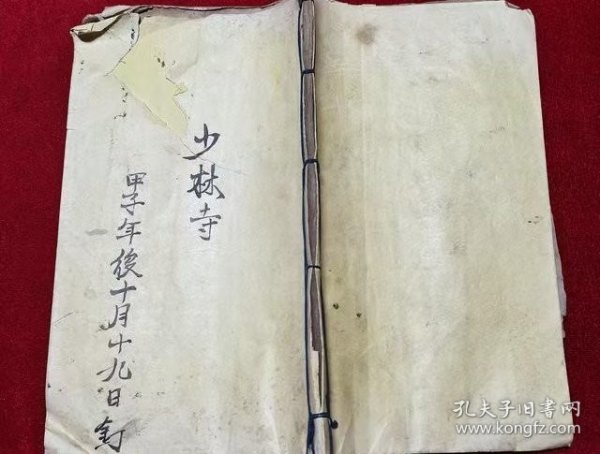 少林寺
甲子年後十月十九日訂
孔夫子旧书网
www.kongfz.com